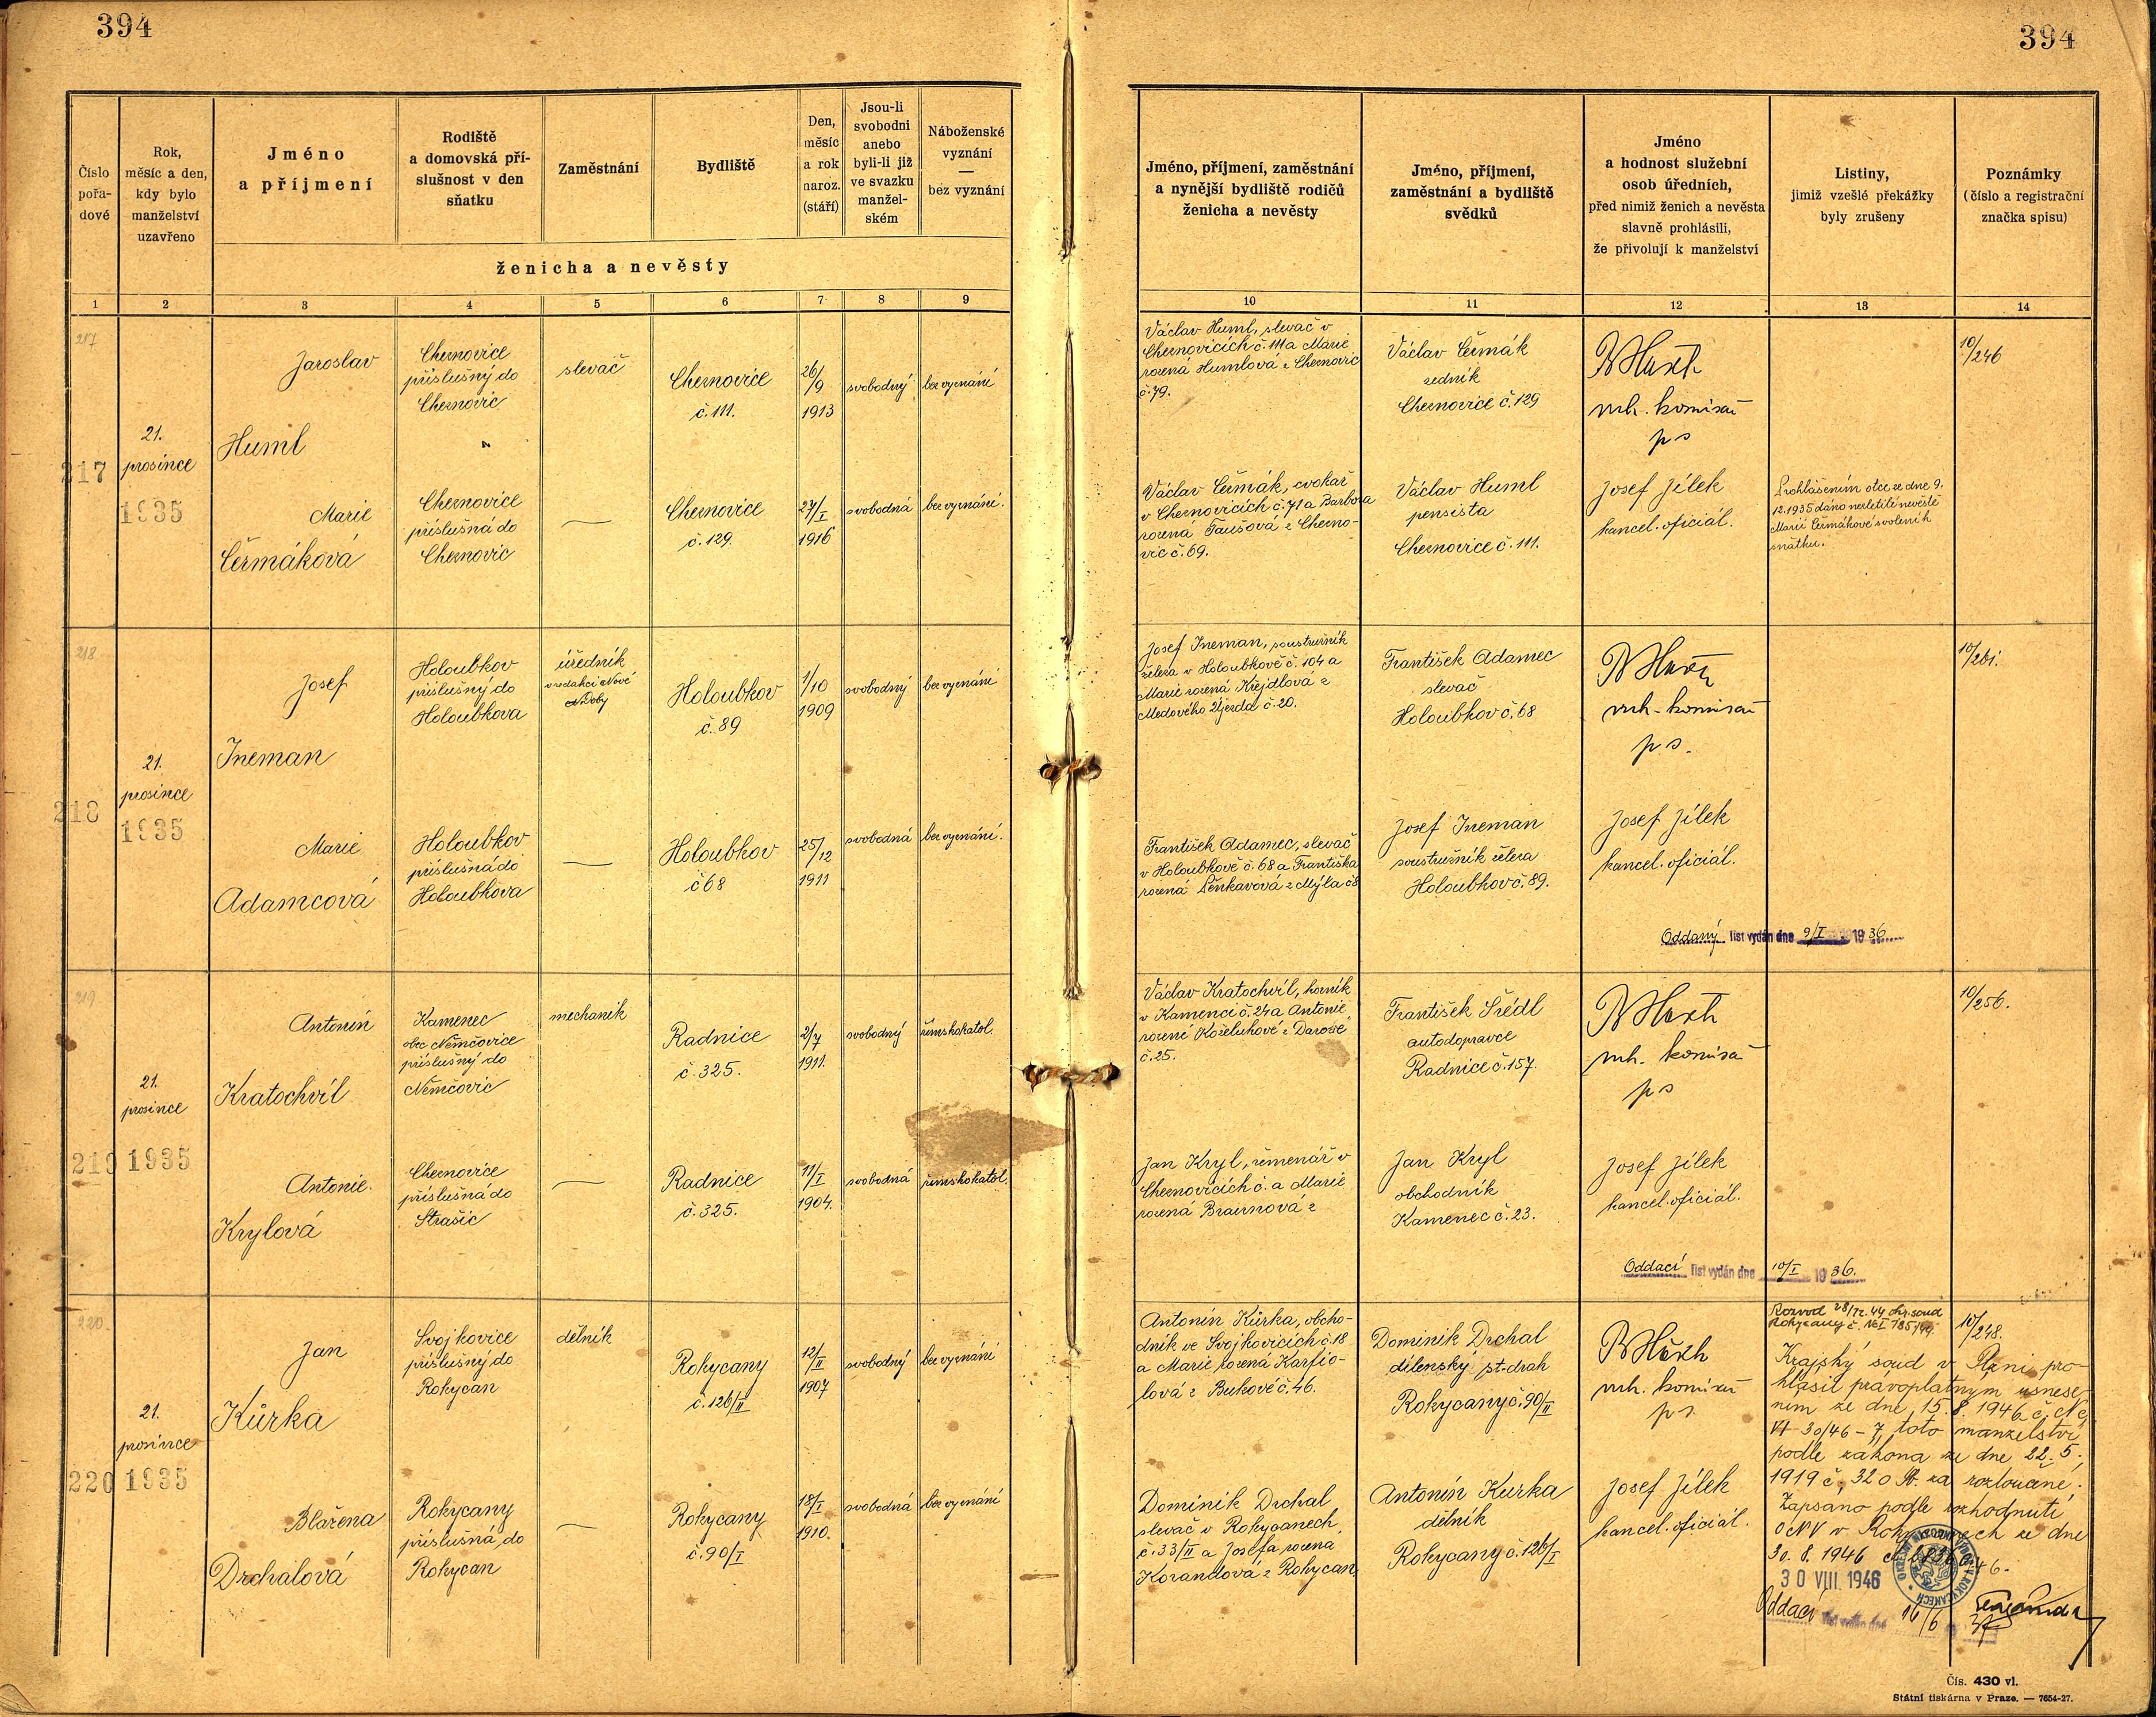 394
394
Číslo pořadové
Rok, měsíc a den, kdy bylo manželství uzavřeno
Jméno a příjmení
Rodiště a domovská příslušnost v den sňatku
Zaměstnání
Bydliště
Den, měsíc a rok naroz. (stáří)
Jsou-li svobodni anebo byli-li již ve svazku manželském
Náboženské vyznání — bez vyznání
ženicha a nevěsty
Jméno, příjmení, zaměstnání a nynější bydliště rodičů ženicha a nevěsty
Jméno, příjmení, zaměstnání a bydliště svědků
Jméno a hodnost služební osob úředních, před nimiž ženich a nevěsta slavně prohlásili, že přivolují k manželství
Listiny, jimiž vzešlé překážky byly zrušeny
Poznámky (číslo a registrační značka spisu)
1 2 3 4 5 6 7 8 9 10 11 12 13 14
217
217
21.
prosince
1935
Jaroslav
Huml
Chrnovice
příslušný do
Chrnovic
slevač
Chrnovice
č. 111.
26/9
1913
svobodný
bez vyznání
Václav Huml, slevač v
Chrnovicích č. 111 a Marie
rozená Humlová z Chrnovic
č. 79.
Václav Čermák
zedník
Chrnovice č. 129
vrh. komisař
p s
10/246
Marie
Čermáková
Chrnovice
příslušná do
Chrnovic
—
Chrnovice
č. 129.
27/I
1916
svobodná
bez vyznání.
Václav Čermák, cvokař
v Chrnovicích č. 71 a Barbora
rozená Taušová z Chrno-
vic č. 69.
Václav Huml
pensista
Chrnovice č. 111.
Josef Jílek
kancel. oficiál.
Prohlášením otce ze dne 9.
12.1935 dáno nezletilé nevěstě
Marii Čermákové svolení k
sňatku.
218
218
21.
prosince
1935
Josef
Ineman
Holoubkov
příslušný do
Holoubkova
úředník
v redakci Nové
Doby
Holoubkov
č. 89
1/10
1909
svobodný
bez vyznání
Josef Ineman, soustružník
železa v Holoubkově č. 104 a
Marie rozená Krejdlová z
Medového Újezda č. 20.
František Adamec
slevač
Holoubkov č. 68
vrh. komisař
p s.
10/261.
Marie
Adamcová
Holoubkov
příslušná do
Holoubkova
—
Holoubkov
č 68
25/12
1911
svobodná
bez vyznání.
František Adamec, slevač
v Holoubkově č. 68 a Františka
rozená z Mýta č 8
Josef Ineman
soustružník železa
Holoubkov č. 89.
Josef Jílek
kancel. oficiál.
Oddaný list vydán dne 9/I 1936
219
219
21.
prosince
1935
Antonín
Kratochvíl
Kamenec
obec Němčovice
příslušný do
Němčovic
mechanik
Radnice
č. 325.
2/7
1911.
svobodný
římskokatol.
Václav Kratochvíl, horník
v Kamenci č. 24 a Antonie,
rozené Koželuhové z Darove
č. 25.
František Šrédl
autodopravce
Radnice č. 157.
vrh. komisař
p s
10/256.
Antonie.
Krylová
Chrnovice
příslušná do
Strašic
—
Radnice
č. 325.
11/I
1904.
svobodná
římskokatol.
Jan Kryl, řemenář v
Chrnovicích č. a Marie
rozená Braunová z
Jan Kryl
obchodník
Kamenec č. 23.
Josef Jílek
kancel. oficiál.
Oddací list vydán dne 10/I 1936.
220.
220
21.
prosince
1935
Jan
Kůrka
Svojkovice
příslušný do
Rokycan
dělník
Rokycany
č. 126/II
12/II
1907
svobodný
bez vyznání
Antonín Kůrka, obcho-
dník ve Svojkovicích č. 18
a Marie rozená Karfio-
lová z Bukové č. 46.
Dominik Drchal
dílenský st. drah
Rokycany č. 90/II
vrh. komisař
p s.
Rozvod 28/12.44 okr. soud
Rokycany
10/248.
Krajský soud v Plzni pro-
hlásil právoplatným usnese-
ním ze dne 15.8.1946 č. Nc
VI 30/46-7, toto manželství
podle zákona ze dne 22.5.
1919 č. 320 Sb. za rozloučené.
Zapsáno podle rozhodnutí
ONV v Rokycanech ze dne
30.8.1946
30 VIII. 1946
Oddací list vydán dne 16/6
Blažena
Drchalová
Rokycany
příslušná do
Rokycan
—
Rokycany
č. 90/I
18/I
1910.
svobodná
bez vyznání
Dominik Drchal
slevač v Rokycanech,
č. 33/II a Josefa rozená
Korandová z Rokycan
Antonín Kurka
dělník
Rokycany č. 126/I
Josef Jílek
kancel. oficiál.
Čís. 430 vl.
Státní tiskárna v Praze. — 7654-27.